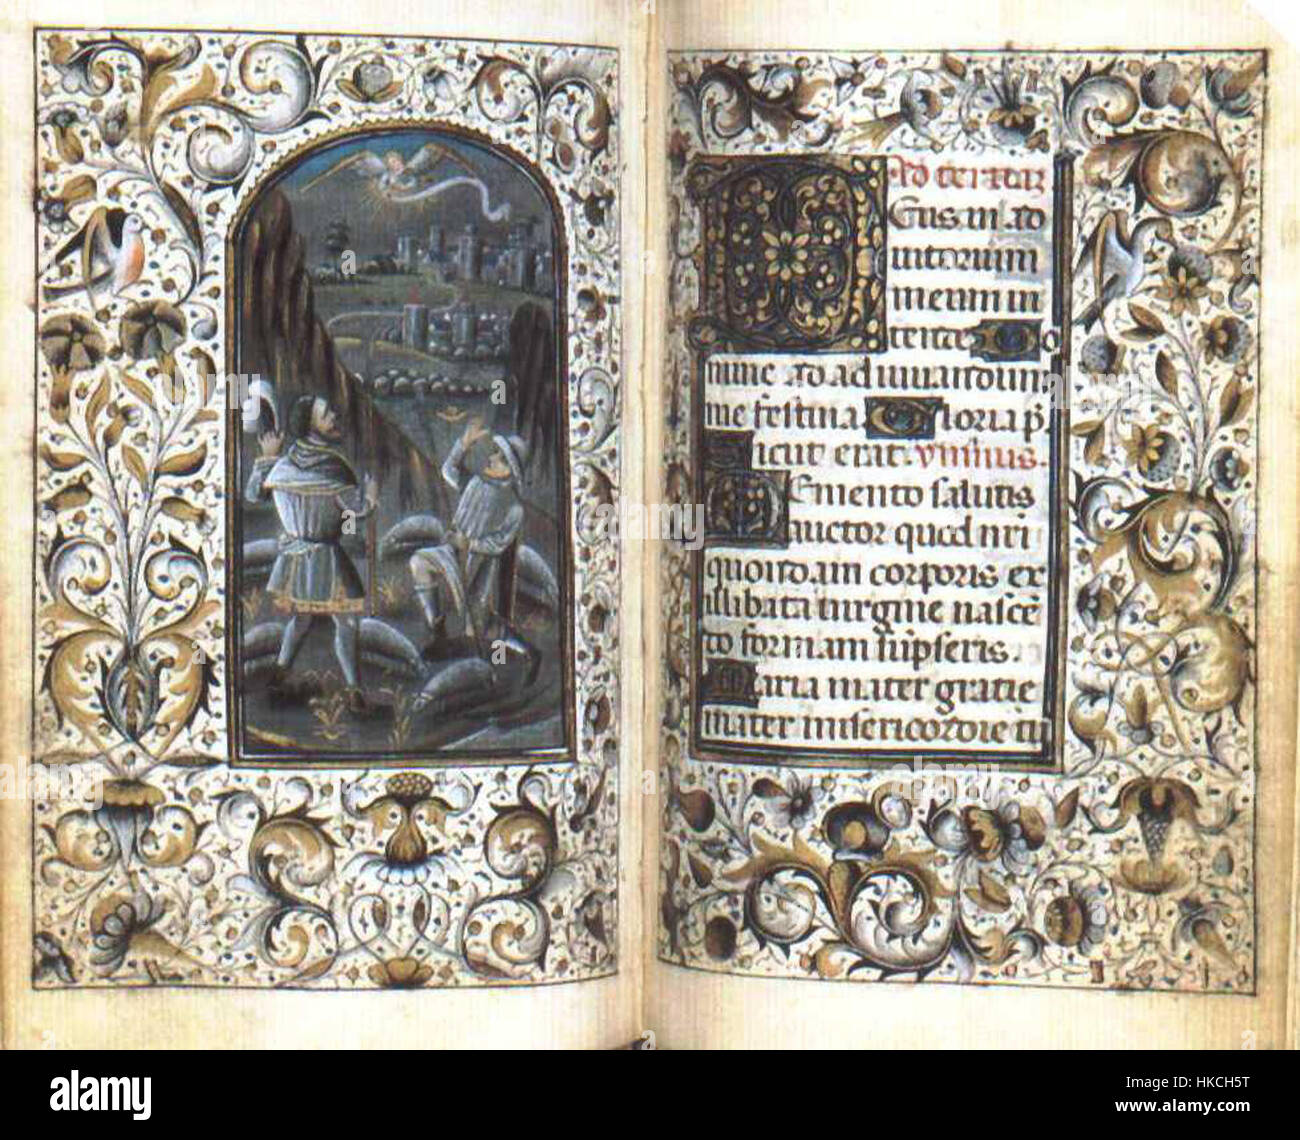 Ad tertiam
Deus in ad
iutorium
meum in
tende Do
mine ad adiuuandum
me festina Gloria p̄.
Sicut erat. ymnus.
Memento salutis
auctor quod nr̄i
quondam corporis ex
illibata uirgine nascē
do formam sūpseris.
Maria mater gratie
mater misericordie tu
alamy
Image ID: HKCH5T
www.alamy.com